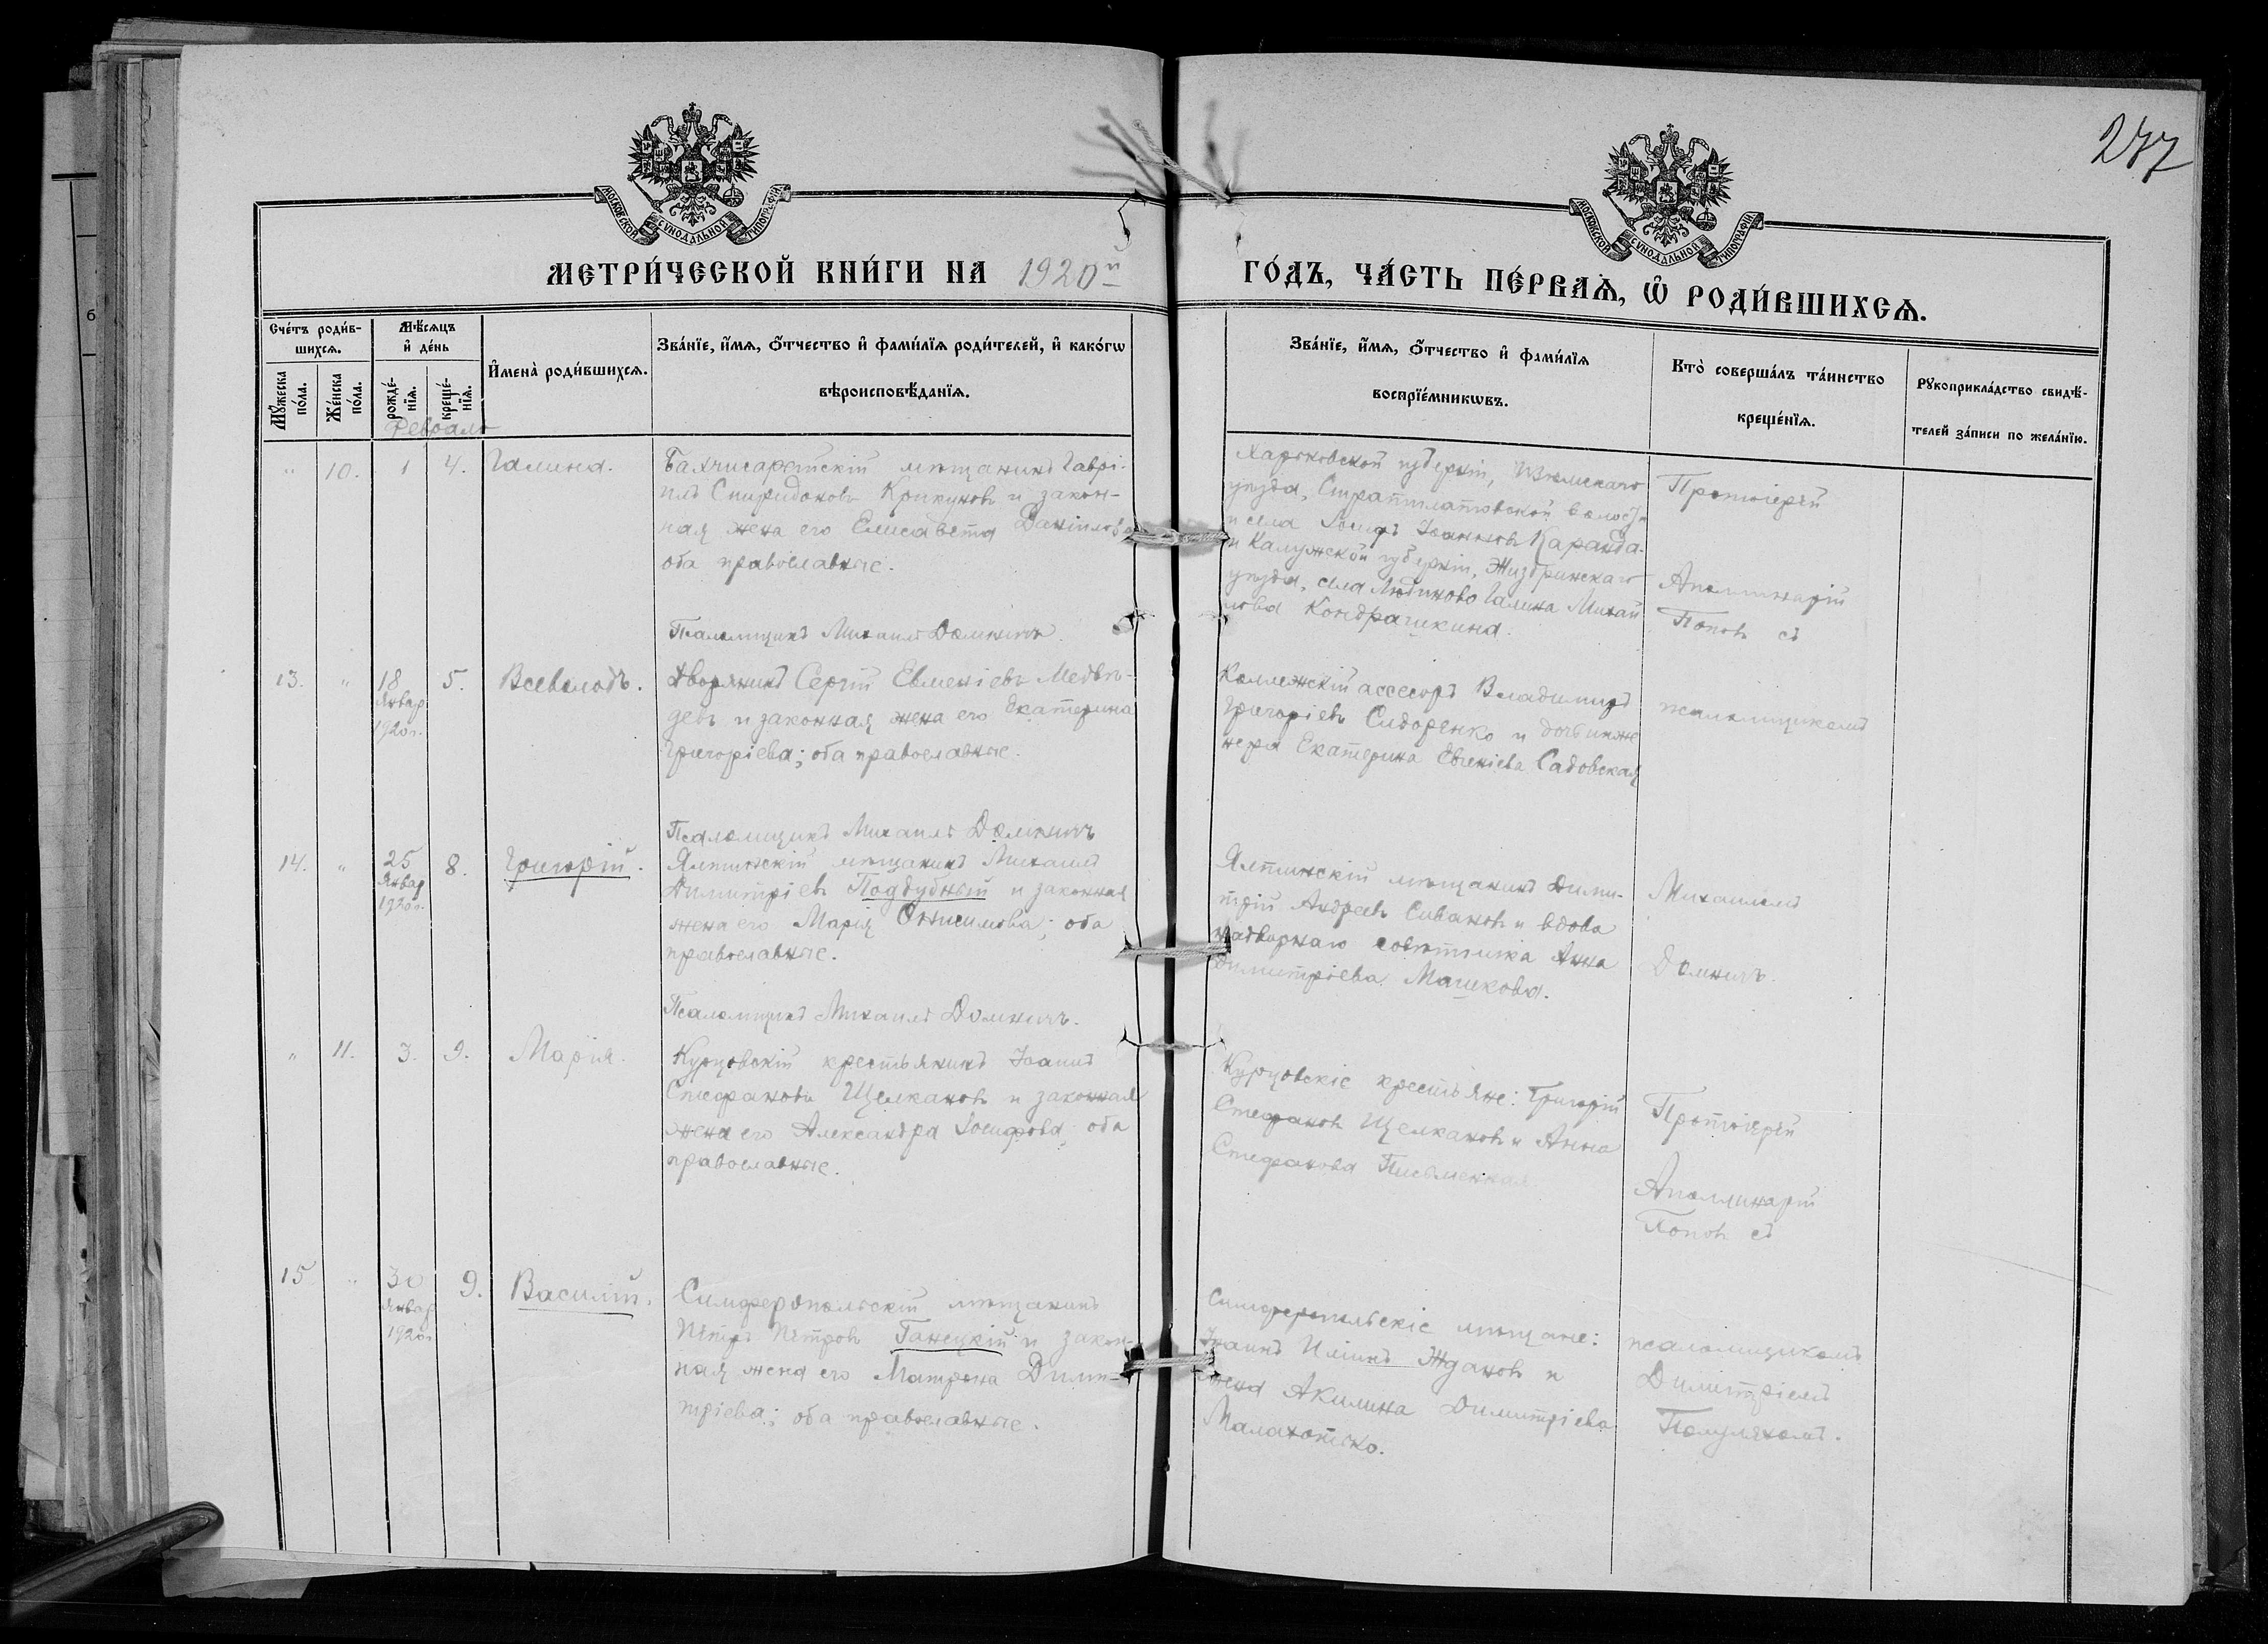 277
МОСКОВСКОЙ СУНОДАЛЬНОЙ ТИПОГРАФІИ
МОСКОВСКОЙ СУНОДАЛЬНОЙ ТИПОГРАФІИ
МЕТРИ́ЧЕСКОЙ КНИ́ГИ НА 1920й ГО́ДЪ, ЧА́СТЬ ПЕ́РВАѦ, Ѽ РОДИ́ВШИХСѦ.
Сче́тъ роди́в-
шихсѧ.
Мꙋ́жеска по́ла.
Же́нска по́ла.
Мѣ́сѧцъ
и҆ де́нь
рожде́-
нїѧ.
креще́-
нїѧ.
Февраль
И҆мена̀ роди́вшихсѧ.
Зва́нїе, и҆́мѧ, ѻ҆́тчество и҆ фами́лїѧ роди́телей, и҆ како́гѡ
вѣроисповѣ́данїѧ.
Зва́нїе, и҆́мѧ, ѻ҆́тчество и҆ фами́лїѧ
воспрїе́мникѡвъ.
Кто̀ соверша́лъ та́инство
креще́нїѧ.
Рꙋкоприкла́дство свидѣ́-
телей за́писи по жела́нїю.
" 10. 1 4. Галина.
Бахчисарайскій мѣщанинъ Гаврі-
илъ Спиридоновъ Крикуновъ и закон-
ная жена его Елисавета Даніилова
оба православные.
Псаломщикъ Михаилъ Домничъ.
Харьковской губерніи, Изюмскаго
уѣзда, волости
и села Іосифъ Іоанновъ
и Калужской губерніи, Жиздринскаго
уѣзда, села Людиново Галина Михаи
лова Кондрашкина.
Протоіерей
Аполлинарій
Поповъ съ
13. " 18 Январ 1920 г. 5. Всеволодъ.
Дворянинъ Сергій Евменіевъ Медвѣ-
девъ и законная жена его Екатерина
Григоріева; оба православные.
Псаломщикъ Михаилъ Домничъ
Коллежскій ассесоръ Владимиръ
Григоріевъ Сидоренко и дочь инже
нера Екатерина Евгеніева Садовская
псаломщикомъ
14. " 25 Январ 1920 г. 8. Григорій.
Ялтинскій мѣщанинъ Михаилъ
Димитріевъ Поддубный и законная
жена его Марія Онисимова; оба
православные.
Псаломщикъ Михаилъ Домничъ.
Ялтинскій мѣщанинъ Дими-
трій Андреевъ Сивановъ и вдова
надворнаго совѣтника Анна
Димитріева Машкова.
Михаиломъ
Домничъ.
" 11. 3. 9. Марія.
Курцовскій крестьянинъ Іоаннъ
Стефановъ Щелкановъ и законная
жена его Александра Іосифова; оба
православные.
Курцовскіе крестьяне: Григорій
Стефановъ Щелкановъ и Анна
Стефанова Письменная
Протоіерей
Аполлинарій
Поповъ съ
15 " 30 Январ 1920 г 9. Василій.
Симферопольскій мѣщанинъ
Петръ Петровъ Ганецкій и закон-
ная жена его Матрона Дими-
тріева; оба православные.
Симферопольскіе мѣщане:
Іоаннъ Ждановъ и
жена Акилина Димитріева
псаломщикомъ
Димитріемъ
Полуляхомъ.